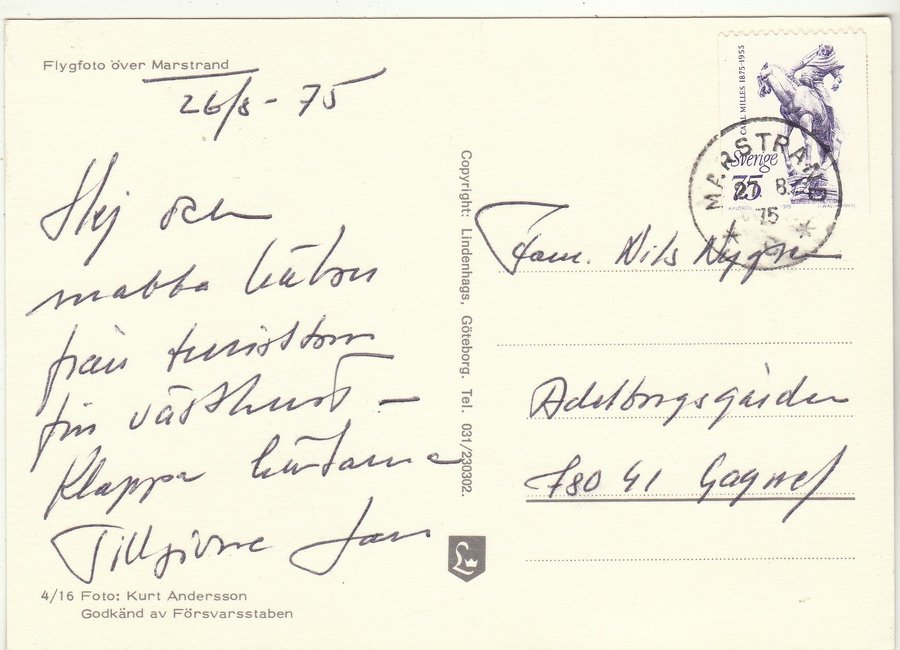 Flygfoto över Marstrand
26/8 - 75
Hej och
snabba hälsn
från turisttom
fin västkust -
Klappa hästarna
Tillgivne Jan
4/16 Foto: Kurt Andersson
Godkänd av Försvarsstaben
Copyright: Lindenhags, Göteborg. Tel. 031/230302.
L
CARL MILLES 1875-1955
Sverige
75
MARSTRAND
27 8.
75
Fam. Nils Nygren
Adelborgsgården
780 41 Gagnef